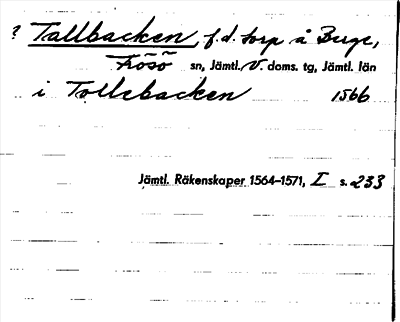 ? Tallbacken, f.d. torp å Berge,
Frösö sn, Jämtl. V. doms. tg, Jämtl. län
i Tollebacken 1566
Jämtl. Räkenskaper 1564–1571, I s. 233